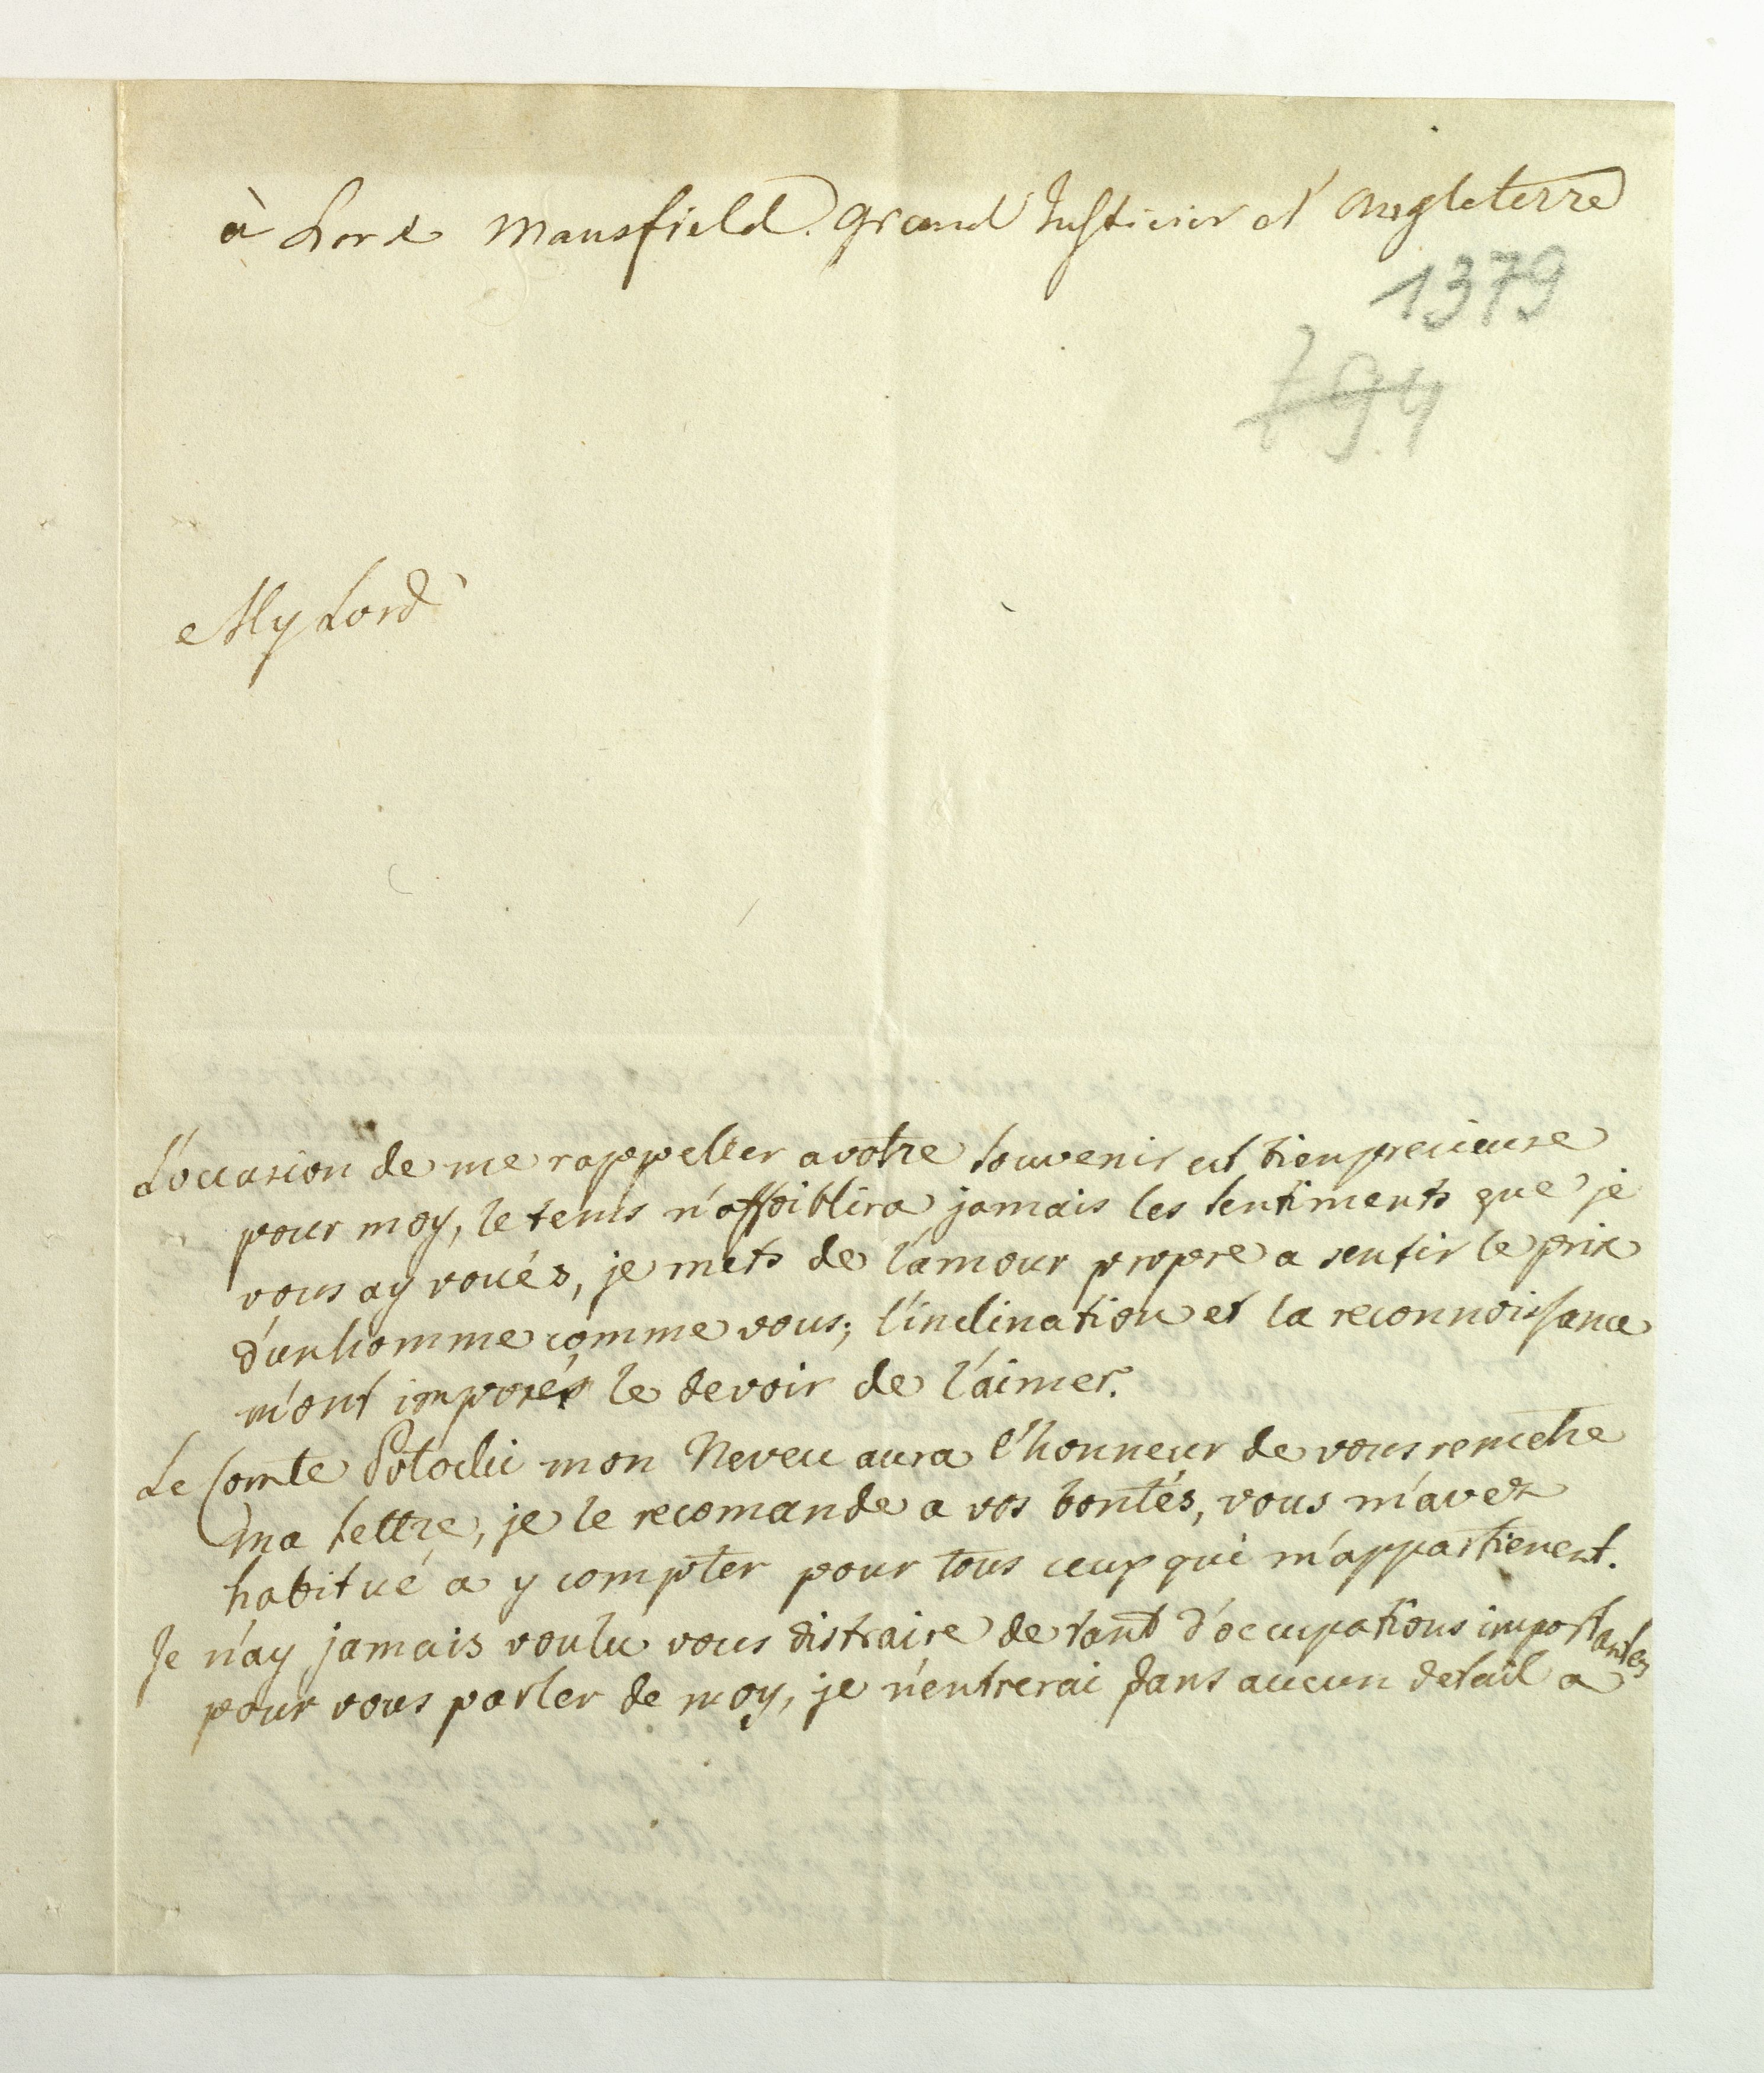 à Lord Mansfield. Grand Justicier d'Angleterre
1379
794
My Lord
L'occasion de me rappeller a votre souvenir est bien precieuse
pour moy, le tems n'affoiblira jamais les sentiments que je
vous ay voués, je mets de l'amour propre a sentir le prix
d'un homme comme vous; l'inclination et la reconnoissance
m'ont imposés le devoir de l'aimer.
Le Comte Potocki mon Neveu aura l'honneur de vous remettre
ma lettre, je le recomande a vos bontés, vous m'avez
habitué a y compter pour tous ceux qui m'appartienent.
Je n'ay jamais voulu vous distraire de tant d'occupations importantes
pour vous parler de moy, je n'entrerai dans aucun detail a